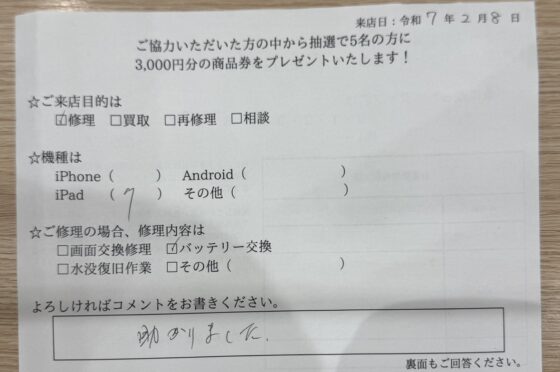 来店日：令和 7 年 2 月 8 日
ご協力いただいた方の中から抽選で5名の方に
3,000円分の商品券をプレゼントいたします！
☆ご来店目的は
☑修理 □買取 □再修理 □相談
☆機種は
iPhone（ ） Android（ ）
iPad （ 7 ） その他（ ）
☆ご修理の場合、修理内容は
□画面交換修理 ☑バッテリー交換
□水没復旧作業 □その他（ ）
よろしければコメントをお書きください。
助かりました.
裏面もご回答ください。